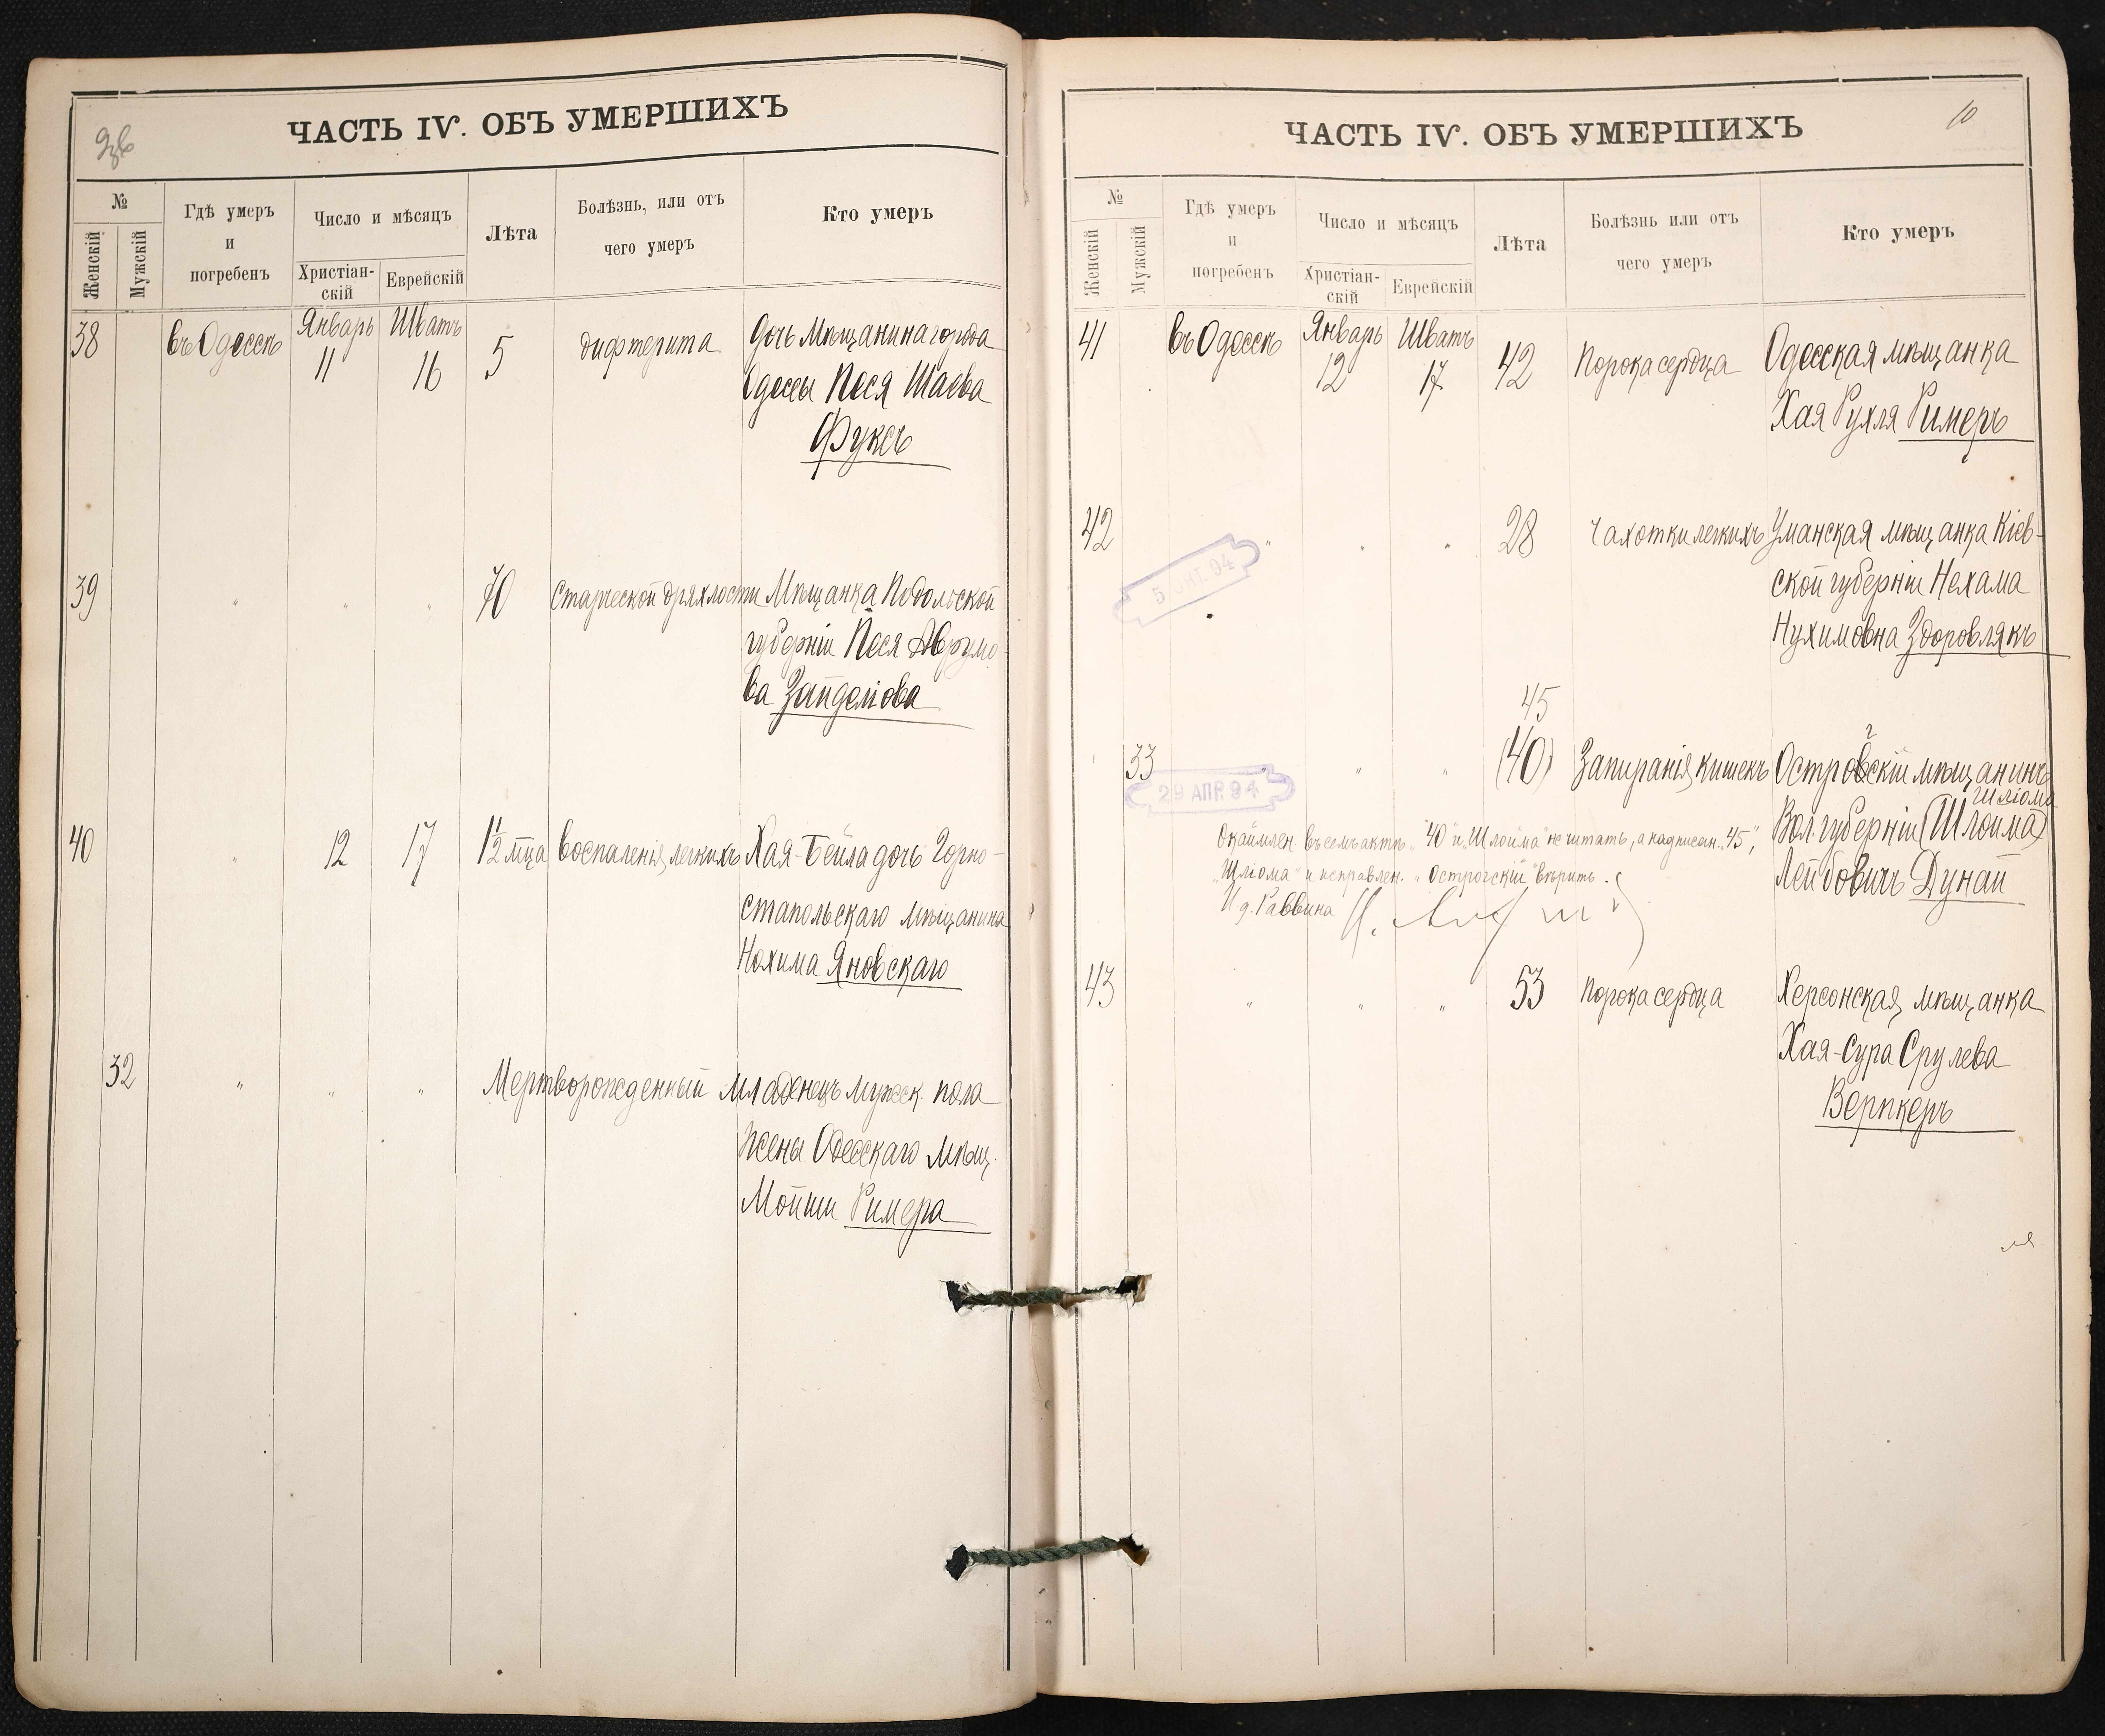 ЧАСТЬ IV. ОБЪ УМЕРШИХЪ
№
Женскій
Мужскій
Гдѣ умеръ
и
погребенъ
Число и мѣсяцъ
Христіан-
скій
Еврейскій
Лѣта
Болѣзнь, или отъ
чего умеръ
Кто умеръ
38 въ Одессѣ Январь 11 Шватъ 16 5 дифтерита Дочь мѣщанина города
Одессы Песя Шаева
Фуксъ
39 " " " 70 Старческой дряхлости Мѣщанка Подольской
губерніи Песя Аврумо-
ва Зайделіова
40 " 12 17 1½ мѣца воспаленія легкихъ Хая-Бейла дочь Горно-
стапольскаго мѣщанина
Нохима Яновскаго
32 " " " Мертворожденный младенецъ мужск. пола
жены Одесскаго мѣщ.
Мойши Римера
ЧАСТЬ IV. ОБЪ УМЕРШИХЪ
10
№
Женскій
Мужскій
Гдѣ умеръ
и
погребенъ
Число и мѣсяцъ
Христіан-
скій
Еврейскій
Лѣта
Болѣзнь или отъ
чего умеръ
Кто умеръ
41 въ Одессѣ Январь 12 Шватъ 17 42 Порока сердца Одесская мѣщанка
Хая Рухля Римеръ
42 " " " 28 Чахотки легкихъ Уманская мѣщанка Кіев-
ской губерніи Нехама
Нухимовна Здоровлякъ
5 ОКТ. 94
45
33 " " " (40) Запиранія кишекъ Островскій мѣщанинъ
г
Шліома
Вол. губерніи (Шлойма)
Лейбовичъ Дунай
29 АПР. 94
Окаймлен. въ семъ актѣ "40" и "Шлойма" не читать, а надписан. "45",
"Шліома" и исправлен. "Острогскій" вѣрить.
И д. Раввина
43 " " " 53 Порока сердца Херсонская мѣщанка
Хая-Сура Срулева
Верпкеръ